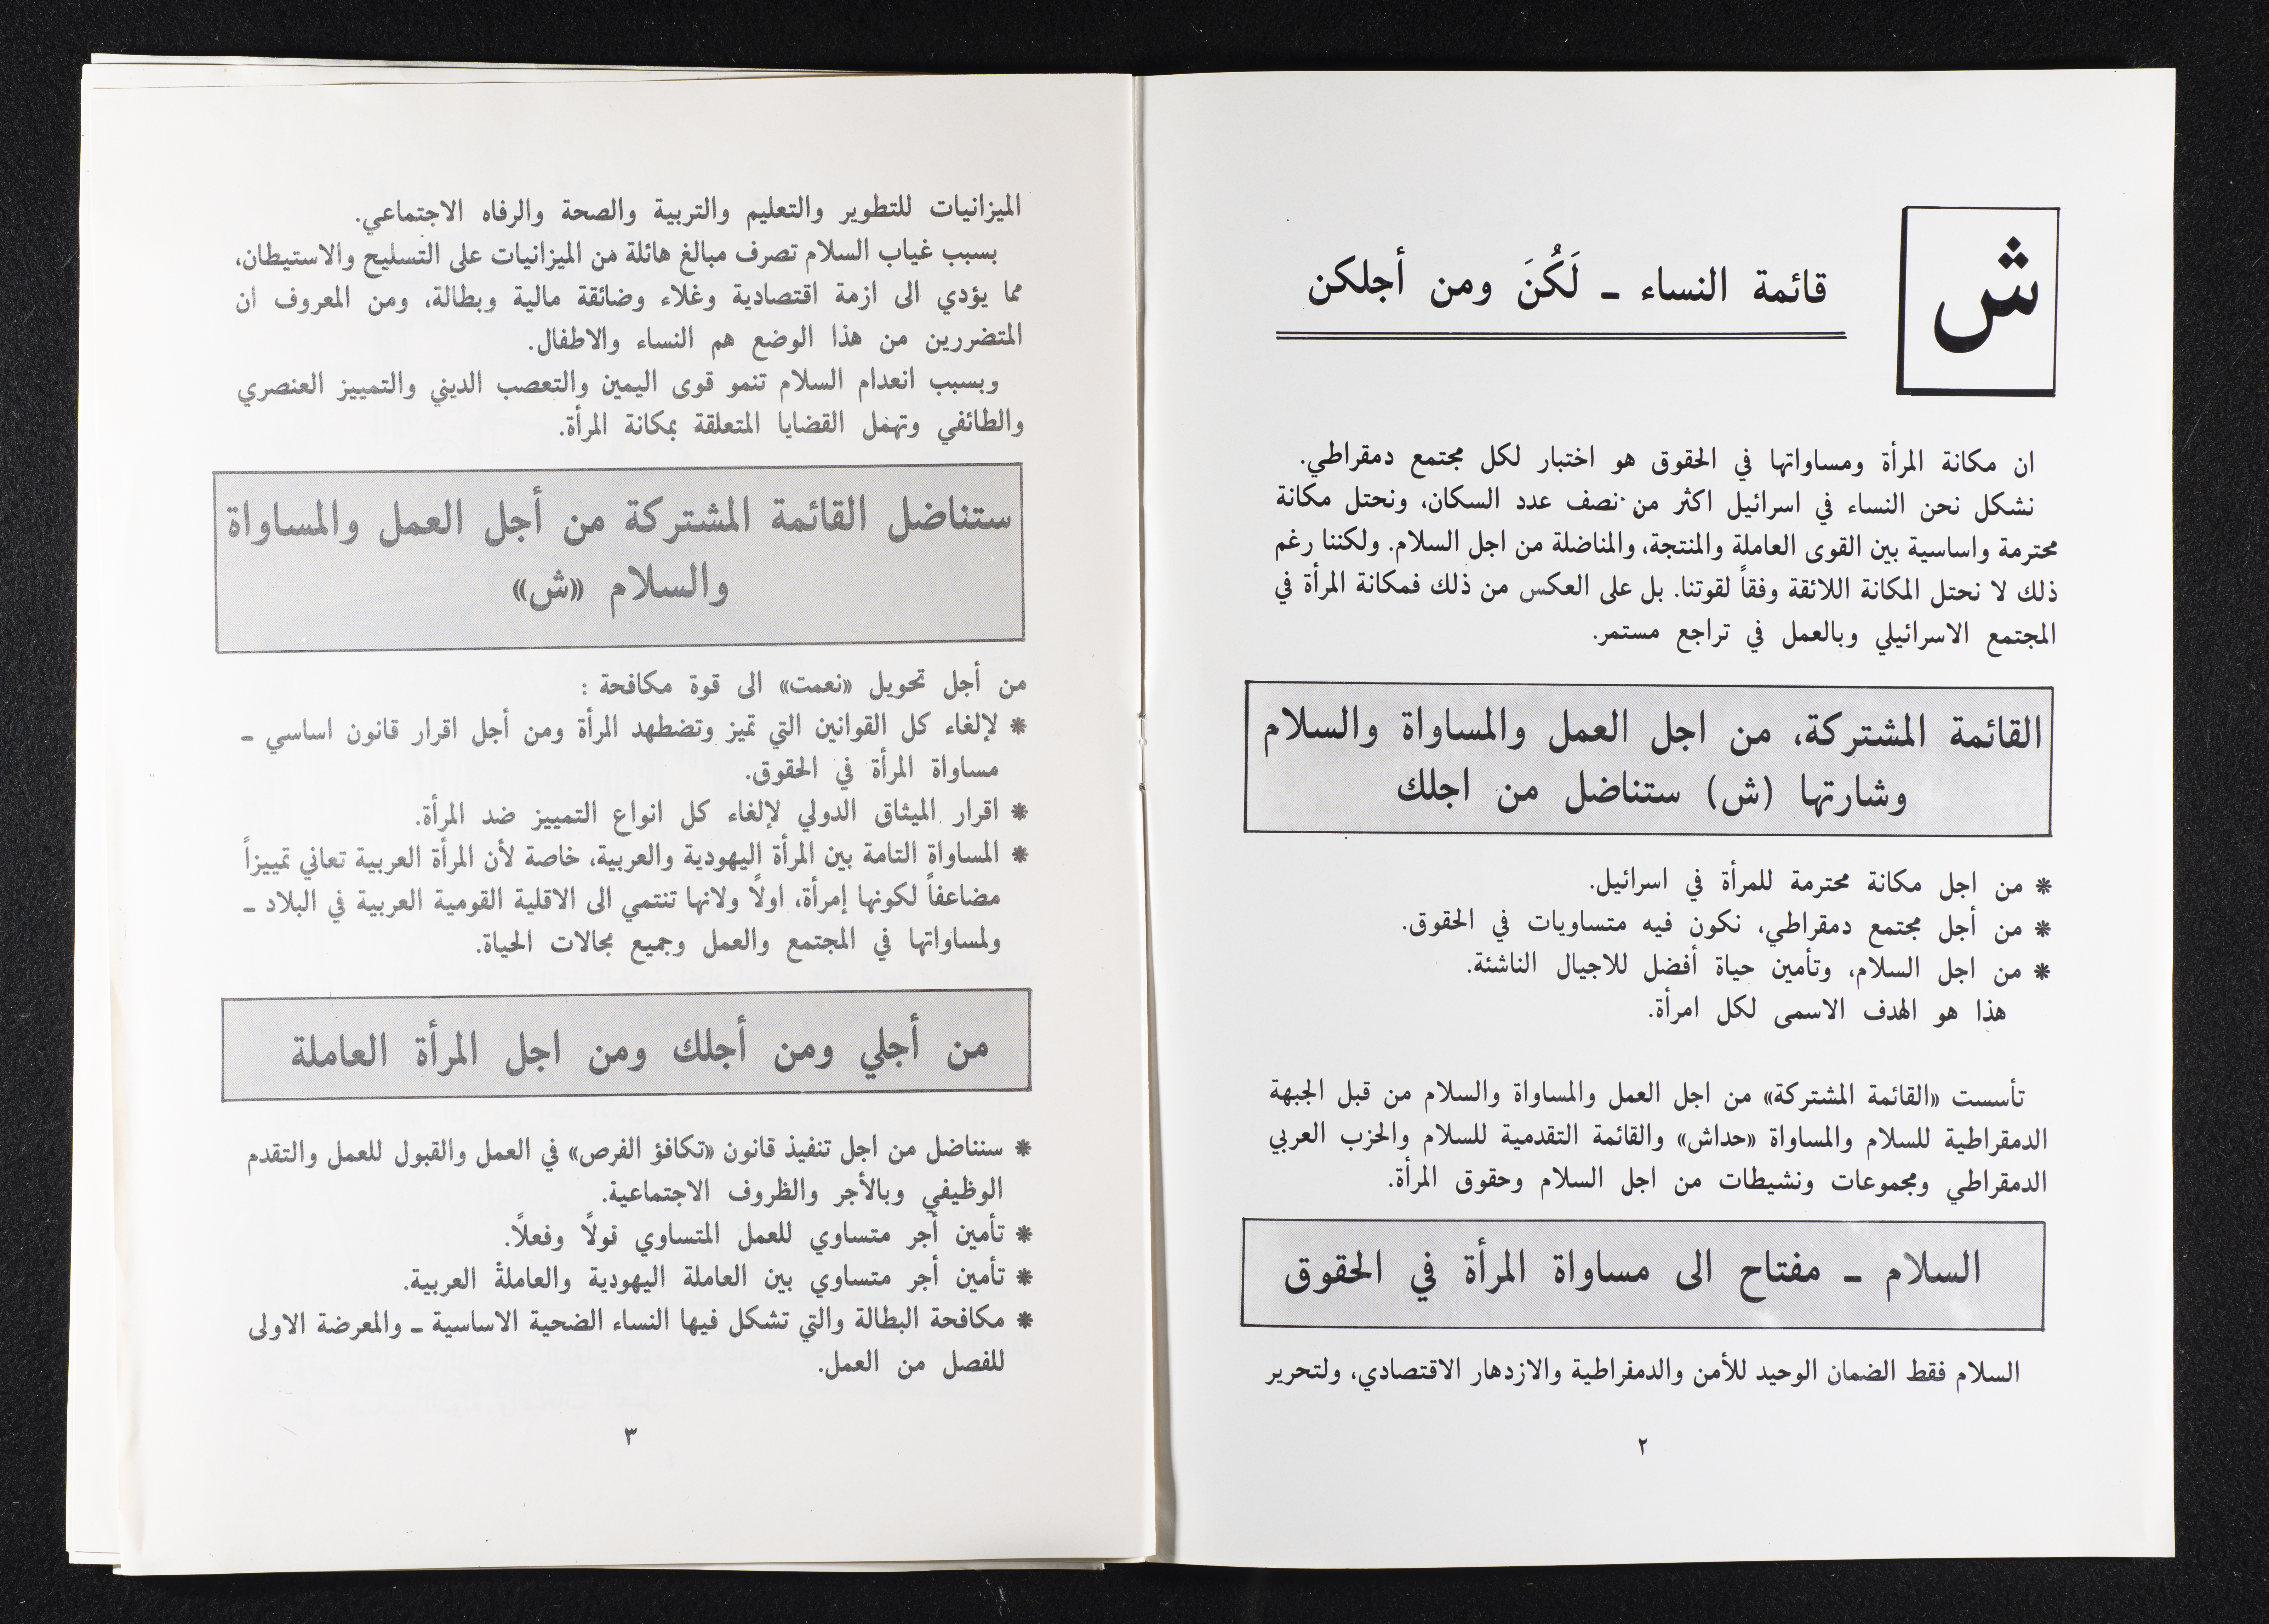 ش
قائمة النساء ـ لَكُنَ ومن أجلكن
ان مكانة المرأة ومساواتها في الحقوق هو اختبار لكل مجتمع دمقراطي.
نشكل نحن النساء في اسرائيل اكثر من نصف عدد السكان، ونحتل مكانة
محترمة واساسية بين القوى العاملة والمنتجة، والمناضلة من اجل السلام. ولكننا رغم
ذلك لا نحتل المكانة اللائقة وفقاً لقوتنا. بل على العكس من ذلك فمكانة المرأة في
المجتمع الاسرائيلي وبالعمل في تراجع مستمر.
القائمة المشتركة، من اجل العمل والمساواة والسلام
وشارتها (ش) ستناضل من اجلك
* من اجل مكانة محترمة للمرأة في اسرائيل.
* من أجل مجتمع دمقراطي، نكون فيه متساويات في الحقوق.
* من اجل السلام، وتأمين حياة أفضل للاجيال الناشئة.
هذا هو الهدف الاسمى لكل امرأة.
تأسست «القائمة المشتركة» من اجل العمل والمساواة والسلام من قبل الجبهة
الدمقراطية للسلام والمساواة «حداش» والقائمة التقدمية للسلام والحزب العربي
الدمقراطي ومجموعات ونشيطات من اجل السلام وحقوق المرأة.
السلام ـ مفتاح الى مساواة المرأة في الحقوق
السلام فقط الضمان الوحيد للأمن والدمقراطية والازدهار الاقتصادي، ولتحرير
٢
الميزانيات للتطوير والتعليم والتربية والصحة والرفاه الاجتماعي.
بسبب غياب السلام تصرف مبالغ هائلة من الميزانيات على التسليح والاستيطان،
مما يؤدي الى ازمة اقتصادية وغلاء وضائقة مالية وبطالة، ومن المعروف ان
المتضررين من هذا الوضع هم النساء والاطفال.
وبسبب انعدام السلام تنمو قوى اليمين والتعصب الديني والتمييز العنصري
والطائفي وتهمل القضايا المتعلقة بمكانة المرأة.
ستناضل القائمة المشتركة من أجل العمل والمساواة
والسلام «ش»
من أجل تحويل «نعمت» الى قوة مكافحة :
* لإلغاء كل القوانين التي تميز وتضطهد المرأة ومن أجل اقرار قانون اساسي ـ
مساواة المرأة في الحقوق.
* اقرار الميثاق الدولي لإلغاء كل انواع التمييز ضد المرأة.
* المساواة التامة بين المرأة اليهودية والعربية، خاصة لأن المرأة العربية تعاني تمييزاً
مضاعفاً لكونها إمرأة، اولاً ولانها تنتمي الى الاقلية القومية العربية في البلاد ـ
ولمساواتها في المجتمع والعمل وجميع مجالات الحياة.
من أجلي ومن أجلك ومن اجل المرأة العاملة
* سنناضل من اجل تنفيذ قانون «تكافؤ الفرص» في العمل والقبول للعمل والتقدم
الوظيفي وبالأجر والظروف الاجتماعية.
* تأمين أجر متساوي للعمل المتساوي قولاً وفعلاً.
* تأمين أجر متساوي بين العاملة اليهودية والعاملة العربية.
* مكافحة البطالة والتي تشكل فيها النساء الضحية الاساسية ـ والمعرضة الاولى
للفصل من العمل.
٣